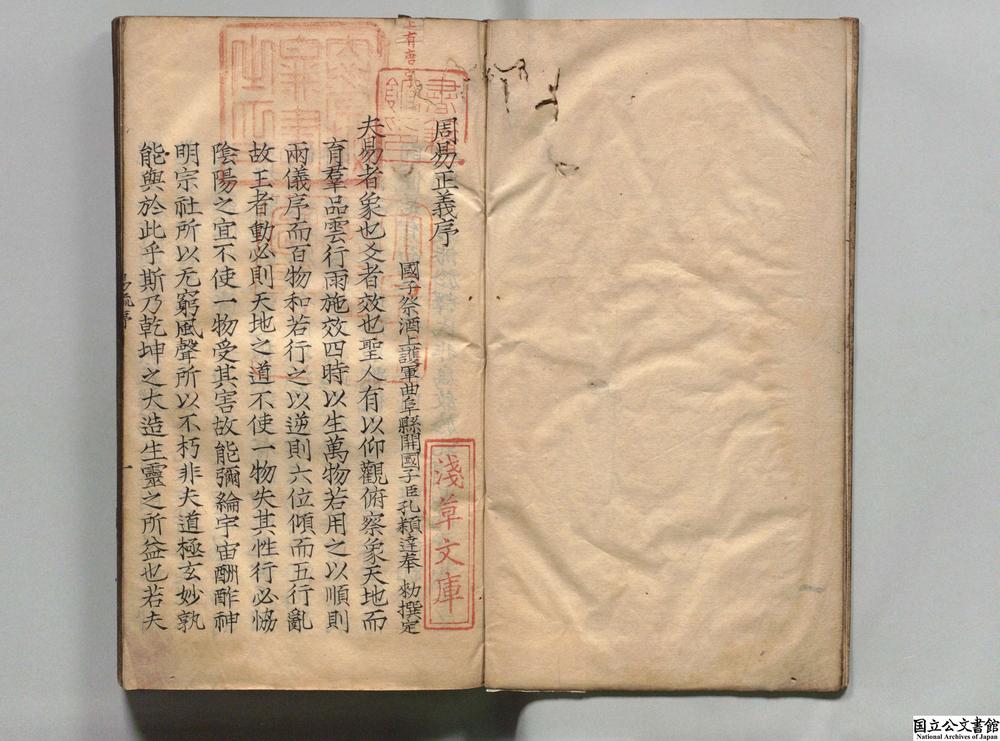 周易正義序
國子祭酒上護軍曲阜縣開國子臣孔穎達奉 勑撰定
夫易者象也爻者效也聖人有以仰觀俯察象天地而
育羣品雲行雨施效四時以生萬物若用之以順則
兩儀序而百物和若行之以逆則六位傾而五行亂
故王者動必則天地之道不使一物失其性行必恊
陰陽之宜不使一物受其害故能彌綸宇宙酬酢神
明宗社所以无窮風聲所以不朽非夫道極玄妙孰
能與於此乎斯乃乾坤之大造生靈之所益也若夫
淺草文庫
一
国立公文書館
National Archives of Japan